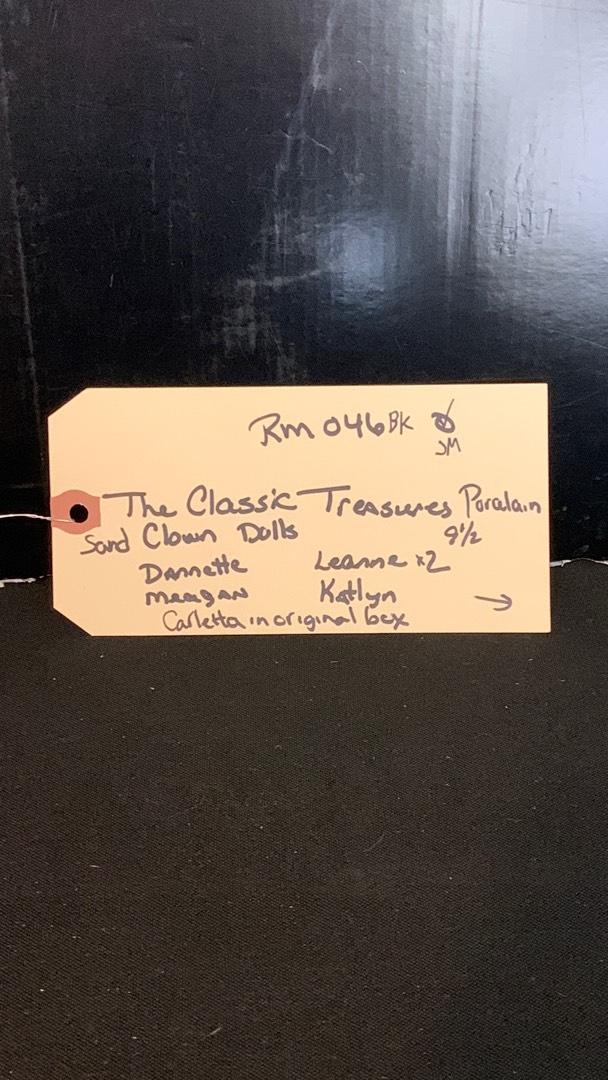 Rm 046 BK
JM
The Classic Treasures Porcalain
Sand Clown Dolls 9 1/2
Dannette Leanne x2
Meagan Katlyn
Carletta in original box →